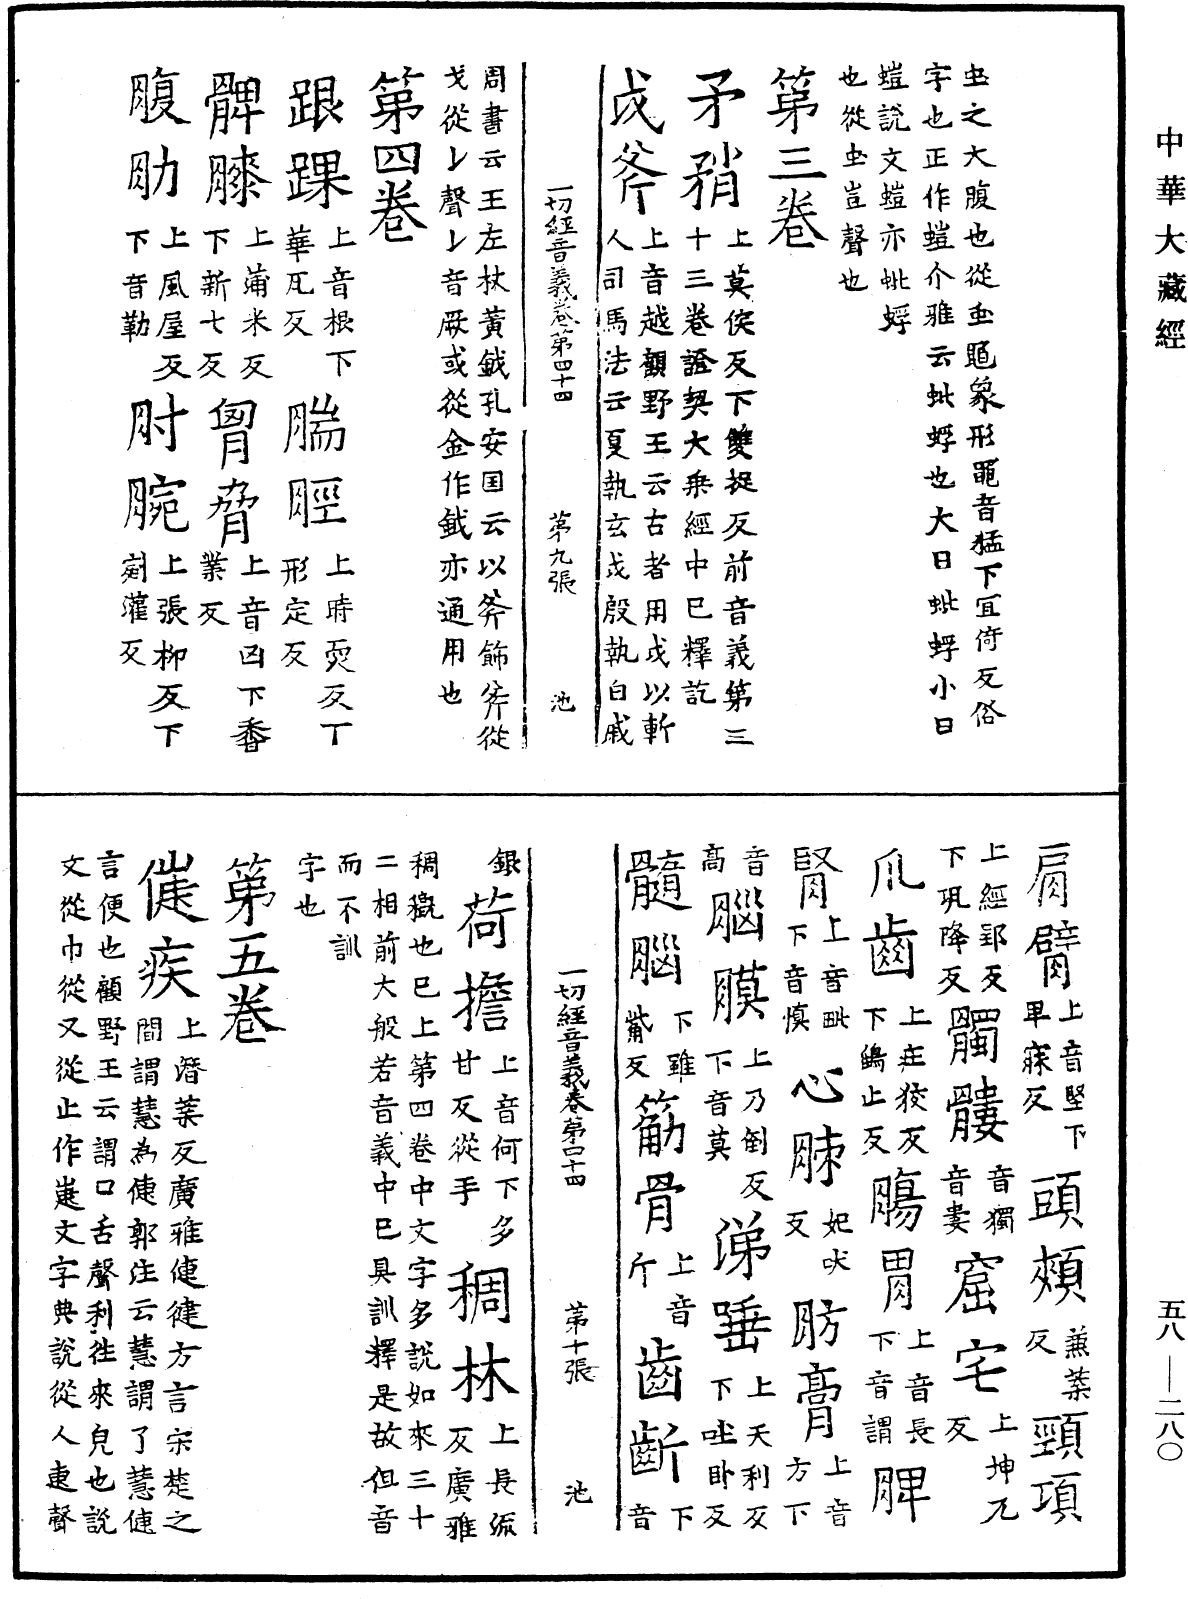 中華大藏經
虫之大腹也從虫黽象形黽音猛下冝倚反俗
字也正作螘介雅云蚍蜉也大曰蚍蜉小曰
螘說文螘亦蚍蜉
也從虫豈聲也
第三卷
矛矟上莫侯反下雙捉反前音義第三
十三卷證契大乗經中已釋訖
戉斧上音越顧野王云古者用戉以斬
人司馬法云夏執玄戉殷執白戚
一切經音義卷第四十四 第九張 池
周書云王左杖黃鉞孔安国云以斧飾斧從
戈從𠄌聲𠄌音厥或從金作鉞亦通用也
第四卷
跟踝上音根下華瓦反 腨脛上時耎反下形定反
髀膝上蒲米反下新七反 胷脅上音凶下香業反
腹肋上風屋反下音勒 肘腕上張柳反下剜灌反
肩臂上音堅下卑寐反 頭頰兼葉反 頸項
上經郢反下巩降反 髑髏音獨音婁 窟宅上坤兀反
爪齒上莊狡反下鴟止反 膓胃上音長下音謂 脾
腎上音毗下音慎 心肺妃吠反 肪膏上音方下
音高 腦膜上乃倒反下音莫 涕唾上天利反下吐卧反
髓腦下雖觜反 筋骨上音斤 齒齗下音
一切經音義卷第四十四 第十張 池
銀 荷擔上音何下多甘反從手 稠林上長流反廣雅
稠穊也已上第四卷中文字多說如來三十
二相前大般若音義中已具訓釋是故但音
而不訓
字也
第五卷
倢疾上潛葉反廣雅倢健方言宋楚之
間謂慧為倢郭注云慧謂了慧倢
言便也顧野王云謂口舌聲利往來皃也說
文從巾從又從止作疌文字典說從人疌聲
五八—二八〇